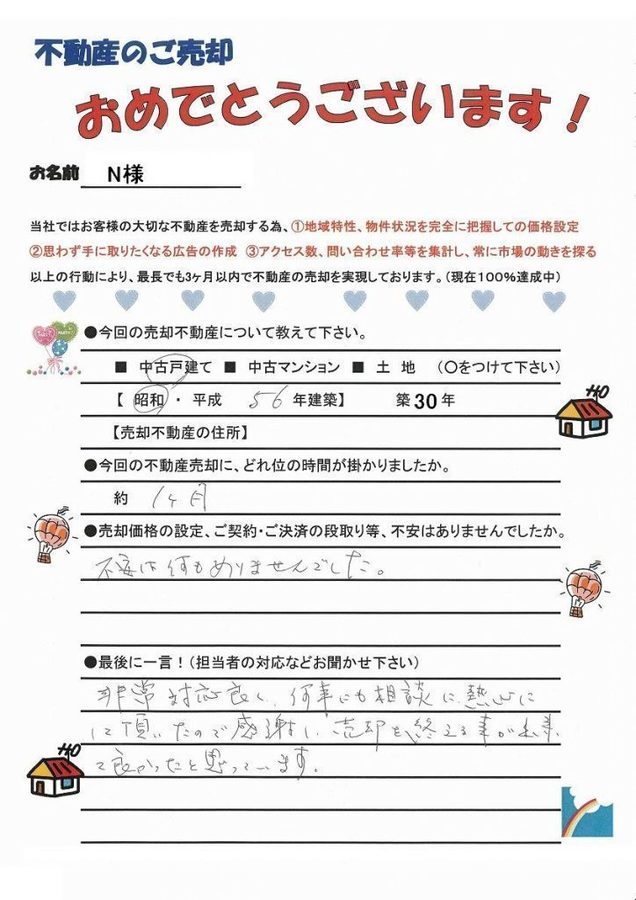 不動産のご売却
おめでとうございます!
お名前 N様
当社ではお客様の大切な不動産を売却する為、①地域特性、物件状況を完全に把握しての価格設定
②思わず手に取りたくなる広告の作成 ③アクセス数、問い合わせ率等を集計し、常に市場の動きを探る
以上の行動により、最長でも3ヶ月以内で不動産の売却を実現しております。(現在100%達成中)
●今回の売却不動産について教えて下さい。
■ 中古戸建て ■ 中古マンション ■ 土 地 (〇をつけて下さい)
【 昭和 ・ 平成 56 年建築】 築30年
【売却不動産の住所】
●今回の不動産売却に、どれ位の時間が掛かりましたか。
約 1ヶ月
●売却価格の設定、ご契約・ご決済の段取り等、不安はありませんでしたか。
不安は何もありませんでした。
●最後に一言!(担当者の対応などお聞かせ下さい)
非常に対応良く、何事にも相談に熱心に
して頂いたので感謝し、売却を終える事が出来
て良かったと思っています。